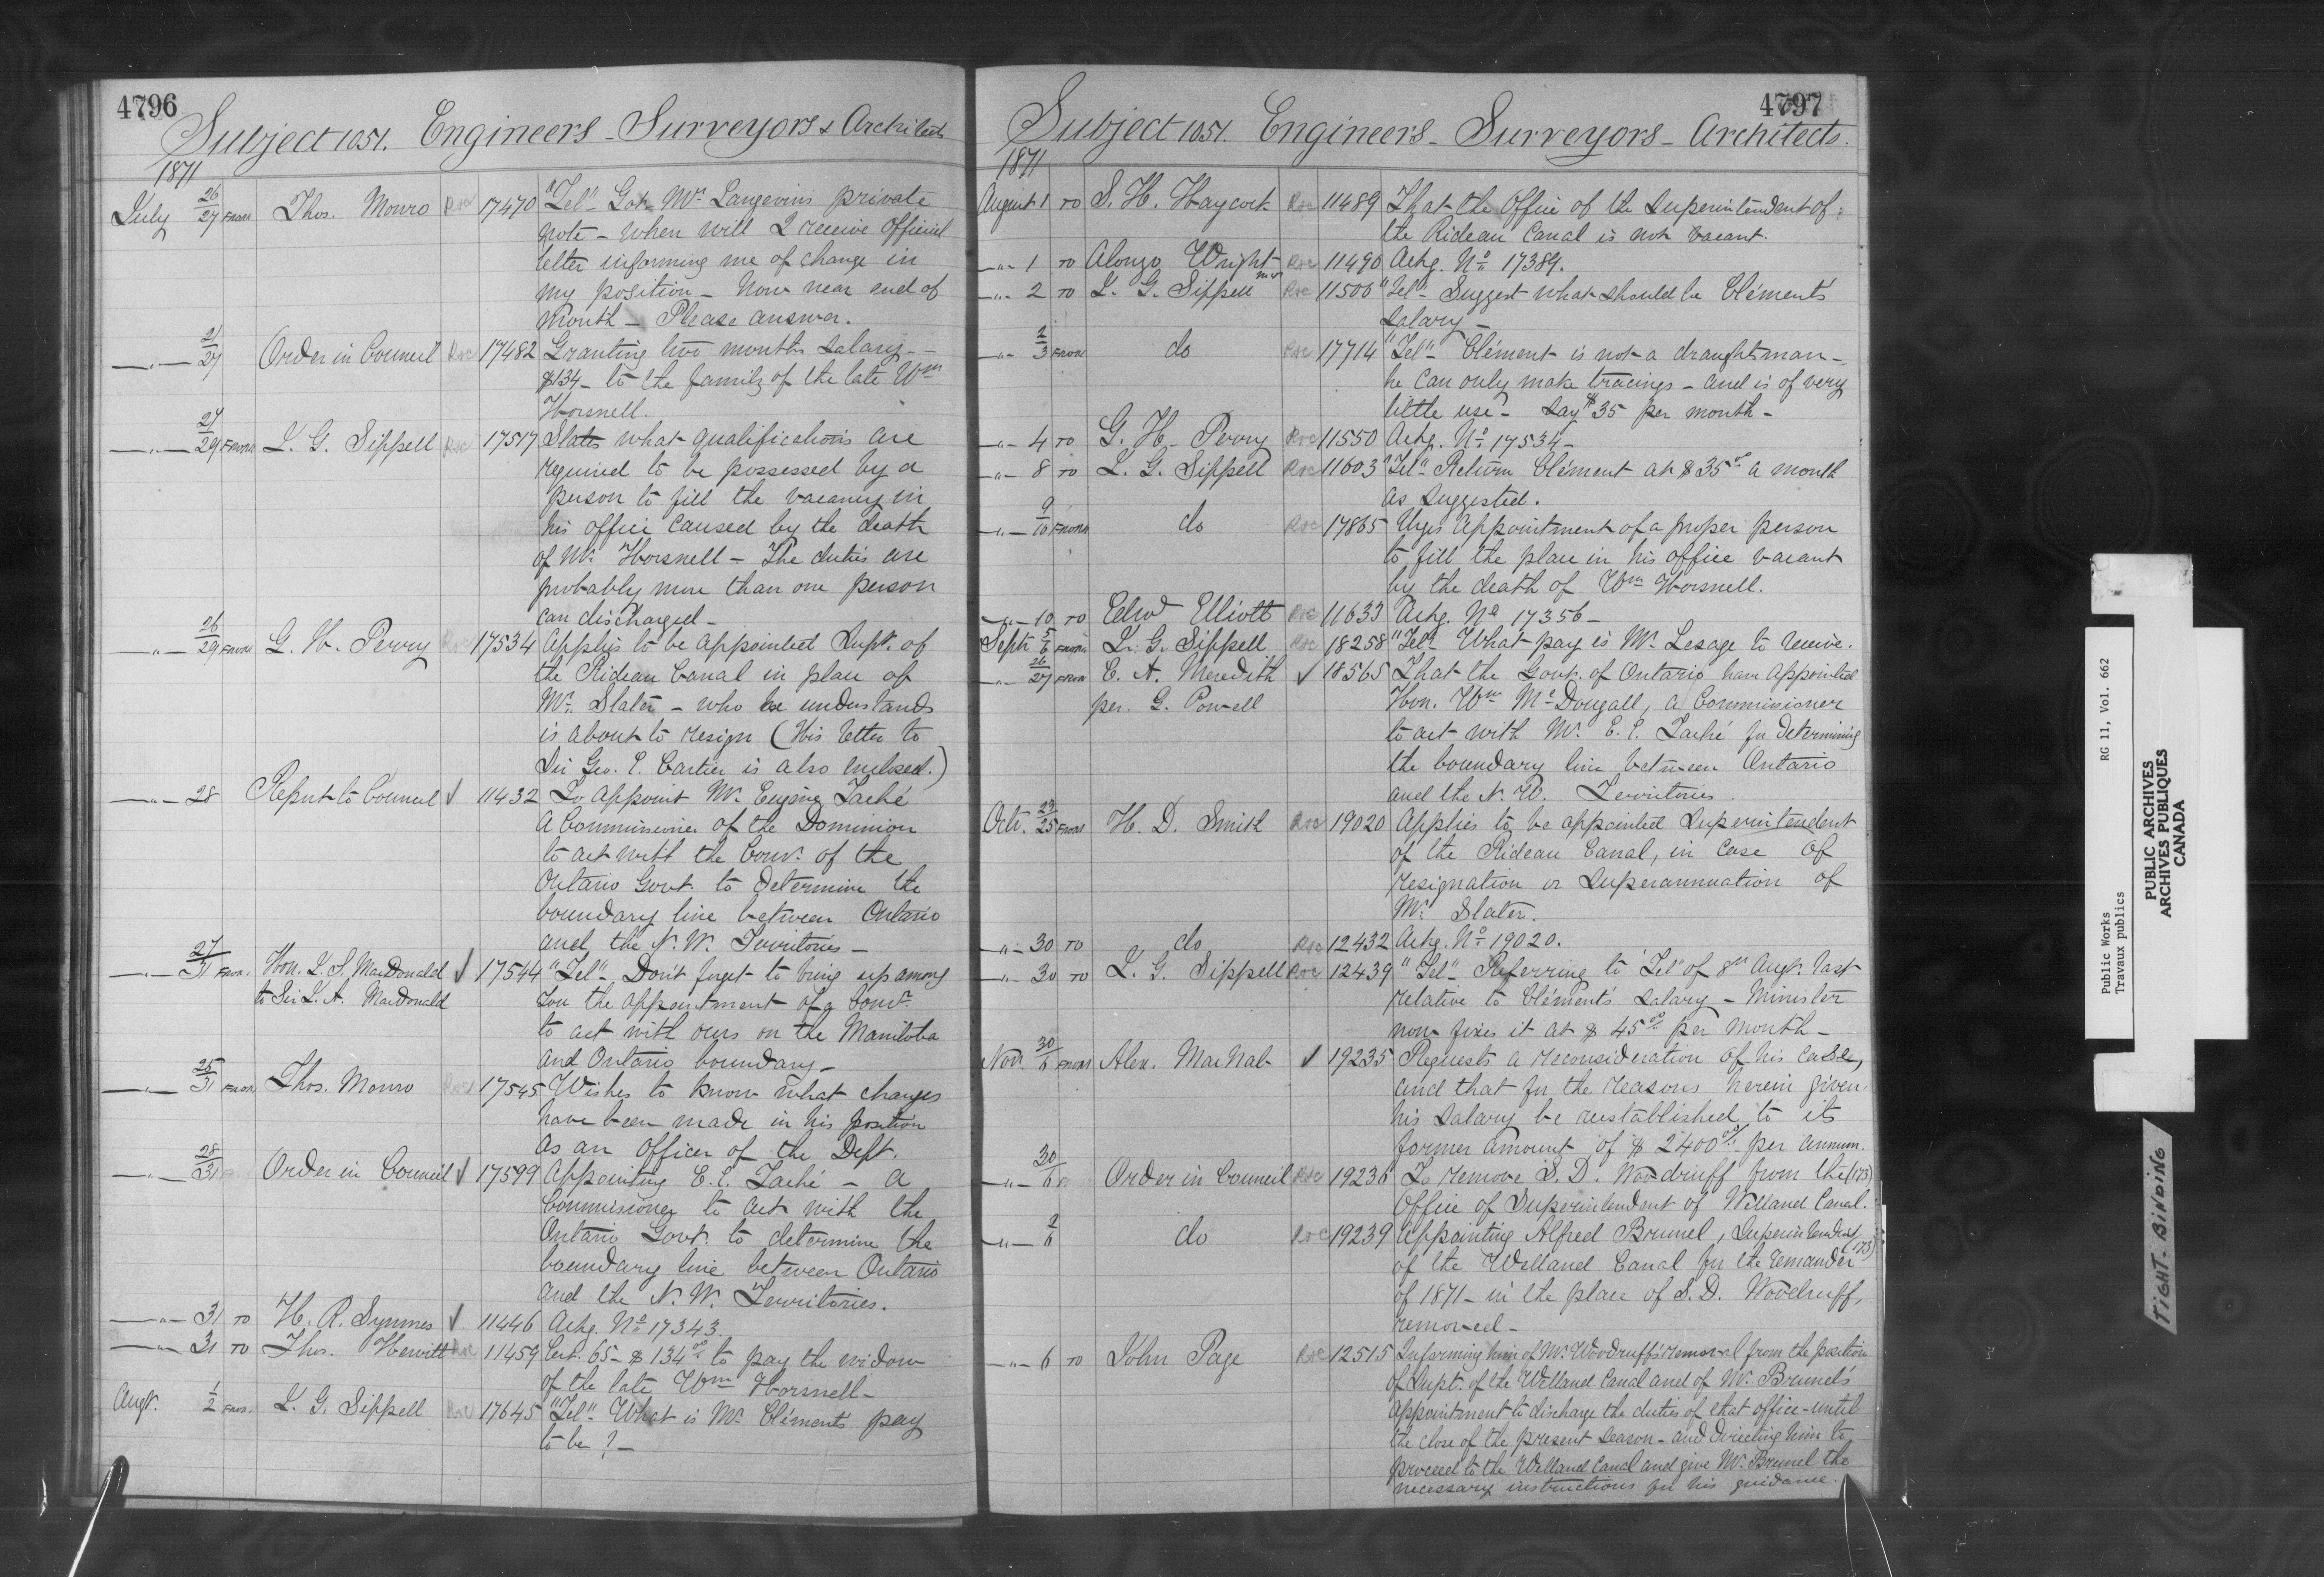 4796
Subject 1051. Engineers - Surveyors & Architects
1871
July 26/27 From Thos. Monro Roc 17470 "Tel" Got Mr. Langevin's private
note - when will I receive Official
letter informing me of change in
my position - Now near end of
month - Please answer.
-"- 21/27 Order in Council Roc 17482 Granting two months salary -
$134 - to the family of the late Wm
Horsnell.
-"- 27/29 From L. G. Sippell Roc 17517 States what qualifications are
required to be possessed by a
person to fill the vacancy in
his office caused by the death
of Mr. Horsnell - The duties are
probably more than one person
can discharged -
-"- 26/29 From G. H. Perry Roc 17534 Applys to be appointed Supt. of
the Rideau Canal in place of
Mr. Slater - who he understands
is about to resign (His letter to
Sir Geo. E. Cartier is also enclosed.)
-"- 28 Report to Council ✓ 11432 To appoint Mr. Eugène Taché
a Commissioner of the Dominion
to act with the Comr. of the
Ontario Govt. to determine the
boundary line between Ontario
and the N. W. Territories -
-"- 27/31 From Hon. J. S. MacDonald ✓ 17544 "Tel" Don't forget to bring up among
to Sir J. A. MacDonald you the appointment of a Comr.
to act with ours on the Manitoba
and Ontario boundary -
-"- 25/31 From Thos. Monro Roc 17545 Wishes to know what changes
have been made in his position
as an Officer of the Dept.
-"- 28/31 Order in Council ✓ 17599 Appointing E. E. Taché - a
Commissioner to act with the
Ontario Govt. to determine the
boundary line between Ontario
and the N. W. Territories.
-"- 31 To H. R. Symmes ✓ 11446 Ackg. No 17343.
-"- 31 To Thos. Hewitt Roc 11459 Cert. 65 - $134.00 to pay the widow
of the late Wm Horsnell -
Augt. 1/2 From L. G. Sippell Roc 17645 "Tel" What is Mr. Clément's pay
to be? -
4797
Subject 1051. Engineers - Surveyors - Architects.
1871
August 1 To S. H. Haycock Roc 11489 That the Office of the Superintendent of
the Rideau Canal is not vacant.
-"- 1 To Alonzo Wright Roc 11490 Ackg. No 17389.
-"- 2 To L. G. Sippell Roc 11500 "Tel" Suggest what should be Clément's
salary -
-"- 2/3 From do Roc 17714 "Tel" Clément is not a draughtsman -
he can only make tracings - and is of very
little use - Say $35 per month -
-"- 4 To G. H. Perry Roc 11550 Ackg. No 17534 -
-"- 8 To L. G. Sippell Roc 11603 "Tel" Return Clément at $35.00 a month
as suggested.
-"- 9/10 From do Roc 17865 Urges appointment of a proper person
to fill the place in his office vacant
by the death of Wm Horsnell.
-"- 10 To Edwd Elliott Roc 11633 Ackg. No 17356 -
Sept. 5/6 From L. G. Sippell Roc 18258 "Tel" What pay is Mr. Lesage to receive.
-"- 26/27 From E. A. Meredith ✓ 18565 That the Govt. of Ontario have appointed
per. G. Powell Hon. Wm McDougall, a Commissioner
to act with Mr. E. E. Taché for determining
the boundary line between Ontario
and the N. W. Territories.
Oct. 23/25 From H. D. Smith Roc 19020 Applies to be appointed Superintendent
of the Rideau Canal, in case of
resignation or superannuation of
Mr. Slater.
-"- 30 To do Roc 12432 Ackg. No 19020.
-"- 30 To L. G. Sippell Roc 12439 "Tel" Referring to "Tel" of 8th Augt. last
relative to Clément's salary - Minister
now fixes it at $45.00 per month -
Nov. 30/6 From Alex. MacNab ✓ 19235 Requests a reconsideration of his case,
and that for the reasons herein given
his salary be reestablished to its
former amount of $2400.00 per annum.
-"- 30/6 Order in Council Roc 19236 To remove S. D. Woodruff from the (173)
Office of Superintendent of Welland Canal.
-"- 2/6 do Roc 19239 Appointing Alfred Brunel, Superintendent (173)
of the Welland Canal for the remainder
of 1871 - in the place of S. D. Woodruff,
removed -
-"- 6 To John Page Roc 12515 Informing him of Mr. Woodruff's removal from the position
of Supt. of the Welland Canal and of Mr. Brunel's
appointment to discharge the duties of that office - until
the close of the present season - and directing him to
proceed to the Welland Canal and give Mr. Brunel the
necessary instructions for his guidance.
Public Works RG 11, Vol. 662
Travaux publics
PUBLIC ARCHIVES
ARCHIVES PUBLIQUES
CANADA
TIGHT BINDING